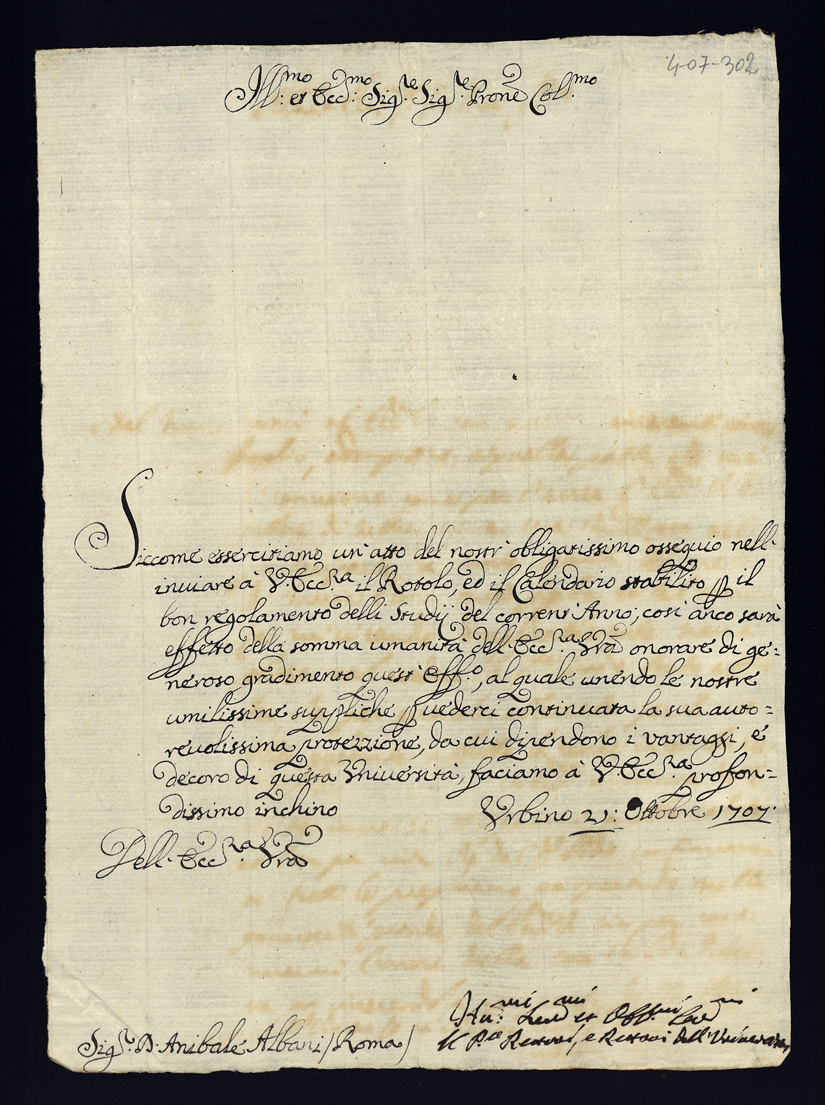 407-302
Ill:mo et Ecc:mo Sig.re Sig.re Prone Col.mo
Siccome essercitiamo un'atto del nostr'obligatissimo ossequio nell'
inviare à V. Ecc.za il Rotolo, ed il Calendario stabilito p il
bon regolamento delli Studij del corrent'Anno, così anco sarà
effetto della somma umanità dell'Ecc.za Vra onorare di ge=
neroso gradimento quest'eff.o, al quale unendo le nostre
umilissime suppliche p vederci continuata la sua auto=
revolissima protezzione, da cui dipendono i vantaggi, e
decoro di questa Università, faciamo à V. Ecc.za profon=
dissimo inchino
Urbino 21: Ottobre 1707.
Dell'Ecc.za Vra
Hu:mi et
e Rettori dell'Università
Sig.r D. Anibale Albani / Roma /